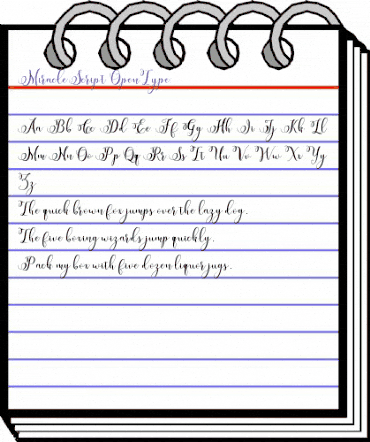 Miracle Script OpenType
Aa Bb Cc Dd Ee Ff Gg Hh Ii Jj Kk Ll
Mm Nn Oo Pp Qq Rr Ss Tt Uu Vv Ww Xx Yy
Zz
The quick brown fox jumps over the lazy dog.
The five boxing wizards jump quickly.
Pack my box with five dozen liquor jugs.